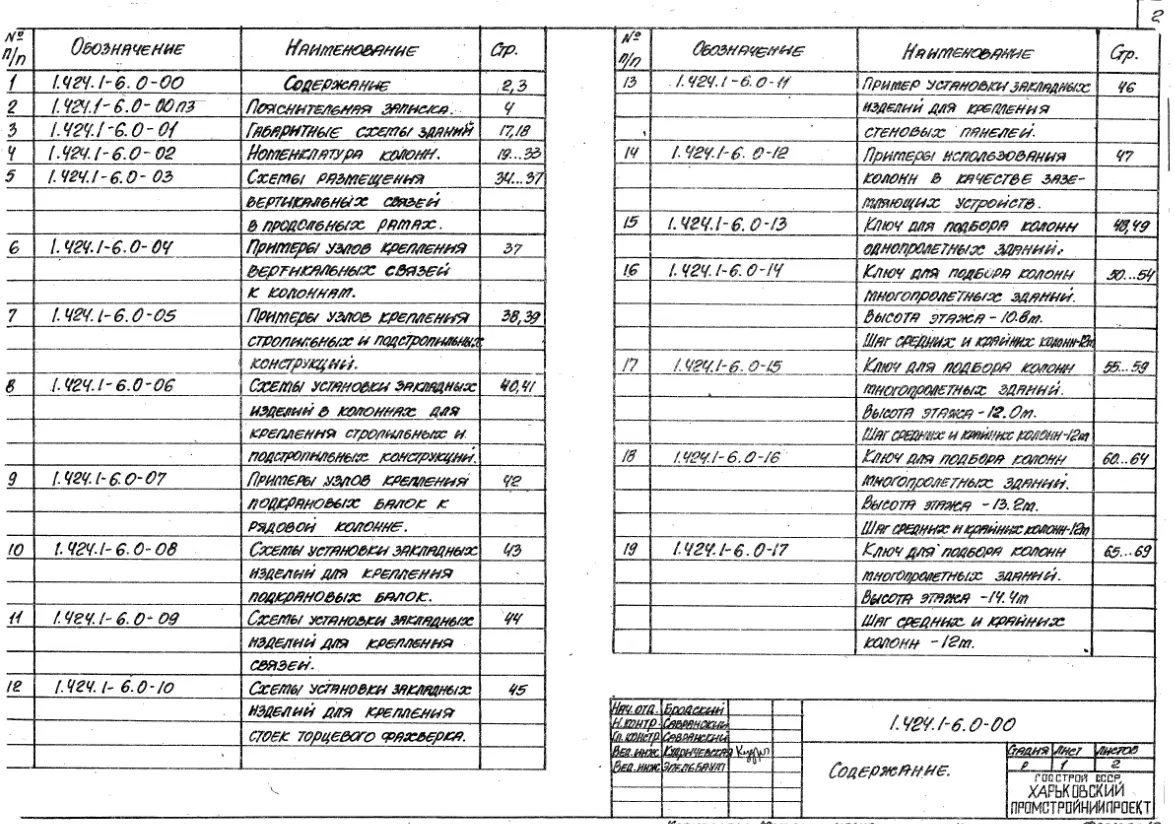 2
№ п/п Обозначение Наименование Стр.
1 1.424.1-6.0-00 Содержание 2,3
2 1.424.1-6.0-00ПЗ Пояснительная записка. 4
3 1.424.1-6.0-01 Габаритные схемы зданий 17,18
4 1.424.1-6.0-02 Номенклатура колонн. 19...33
5 1.424.1-6.0-03 Схемы размещения 34...37
вертикальных связей
в продольных рамах.
6 1.424.1-6.0-04 Примеры узлов крепления 37
вертикальных связей
к колоннам.
7 1.424.1-6.0-05 Примеры узлов крепления 38,39
стропильных и подстропильных
конструкций.
8 1.424.1-6.0-06 Схемы установки закладных 40,41
изделий в колоннах для
крепления стропильных и
подстропильных конструкций.
9 1.424.1-6.0-07 Примеры узлов крепления 42
подкрановых балок к
рядовой колонне.
10 1.424.1-6.0-08 Схемы установки закладных 43
изделий для крепления
подкрановых балок.
11 1.424.1-6.0-09 Схемы установки закладных 44
изделий для крепления
связей.
12 1.424.1-6.0-10 Схемы установки закладных 45
изделий для крепления
стоек торцевого фахверка.
№ п/п Обозначение Наименование Стр.
13 1.424.1-6.0-11 Пример установки закладных 46
изделий для крепления
стеновых панелей.
14 1.424.1-6.0-12 Примеры использования 47
колонн в качестве зазе-
мляющих устройств.
15 1.424.1-6.0-13 Ключ для подбора колонн 48,49
однопролетных зданий.
16 1.424.1-6.0-14 Ключ для подбора колонн 50...54
многопролетных зданий.
Высота этажа - 10.8м.
Шаг средних и крайних колонн-12м
17 1.424.1-6.0-15 Ключ для подбора колонн 55...59
многопролетных зданий.
Высота этажа - 12.0м.
Шаг средних и крайних колонн-12м
18 1.424.1-6.0-16 Ключ для подбора колонн 60...64
многопролетных зданий.
Высота этажа - 13.2м.
Шаг средних и крайних колонн-12м
19 1.424.1-6.0-17 Ключ для подбора колонн 65...69
многопролетных зданий.
Высота этажа - 14.4м
Шаг средних и крайних
колонн - 12м.
Нач.отд. Бродский
Н.контр. Савранский
Гл.констр. Савранский
Вед.инж. Кудричевская
Вед.инж. Эпельбаум
1.424.1-6.0-00
Содержание.
Стадия Лист Листов
Р 1 2
ГОССТРОЙ СССР
ХАРЬКОВСКИЙ
ПРОМСТРОЙНИИПРОЕКТ